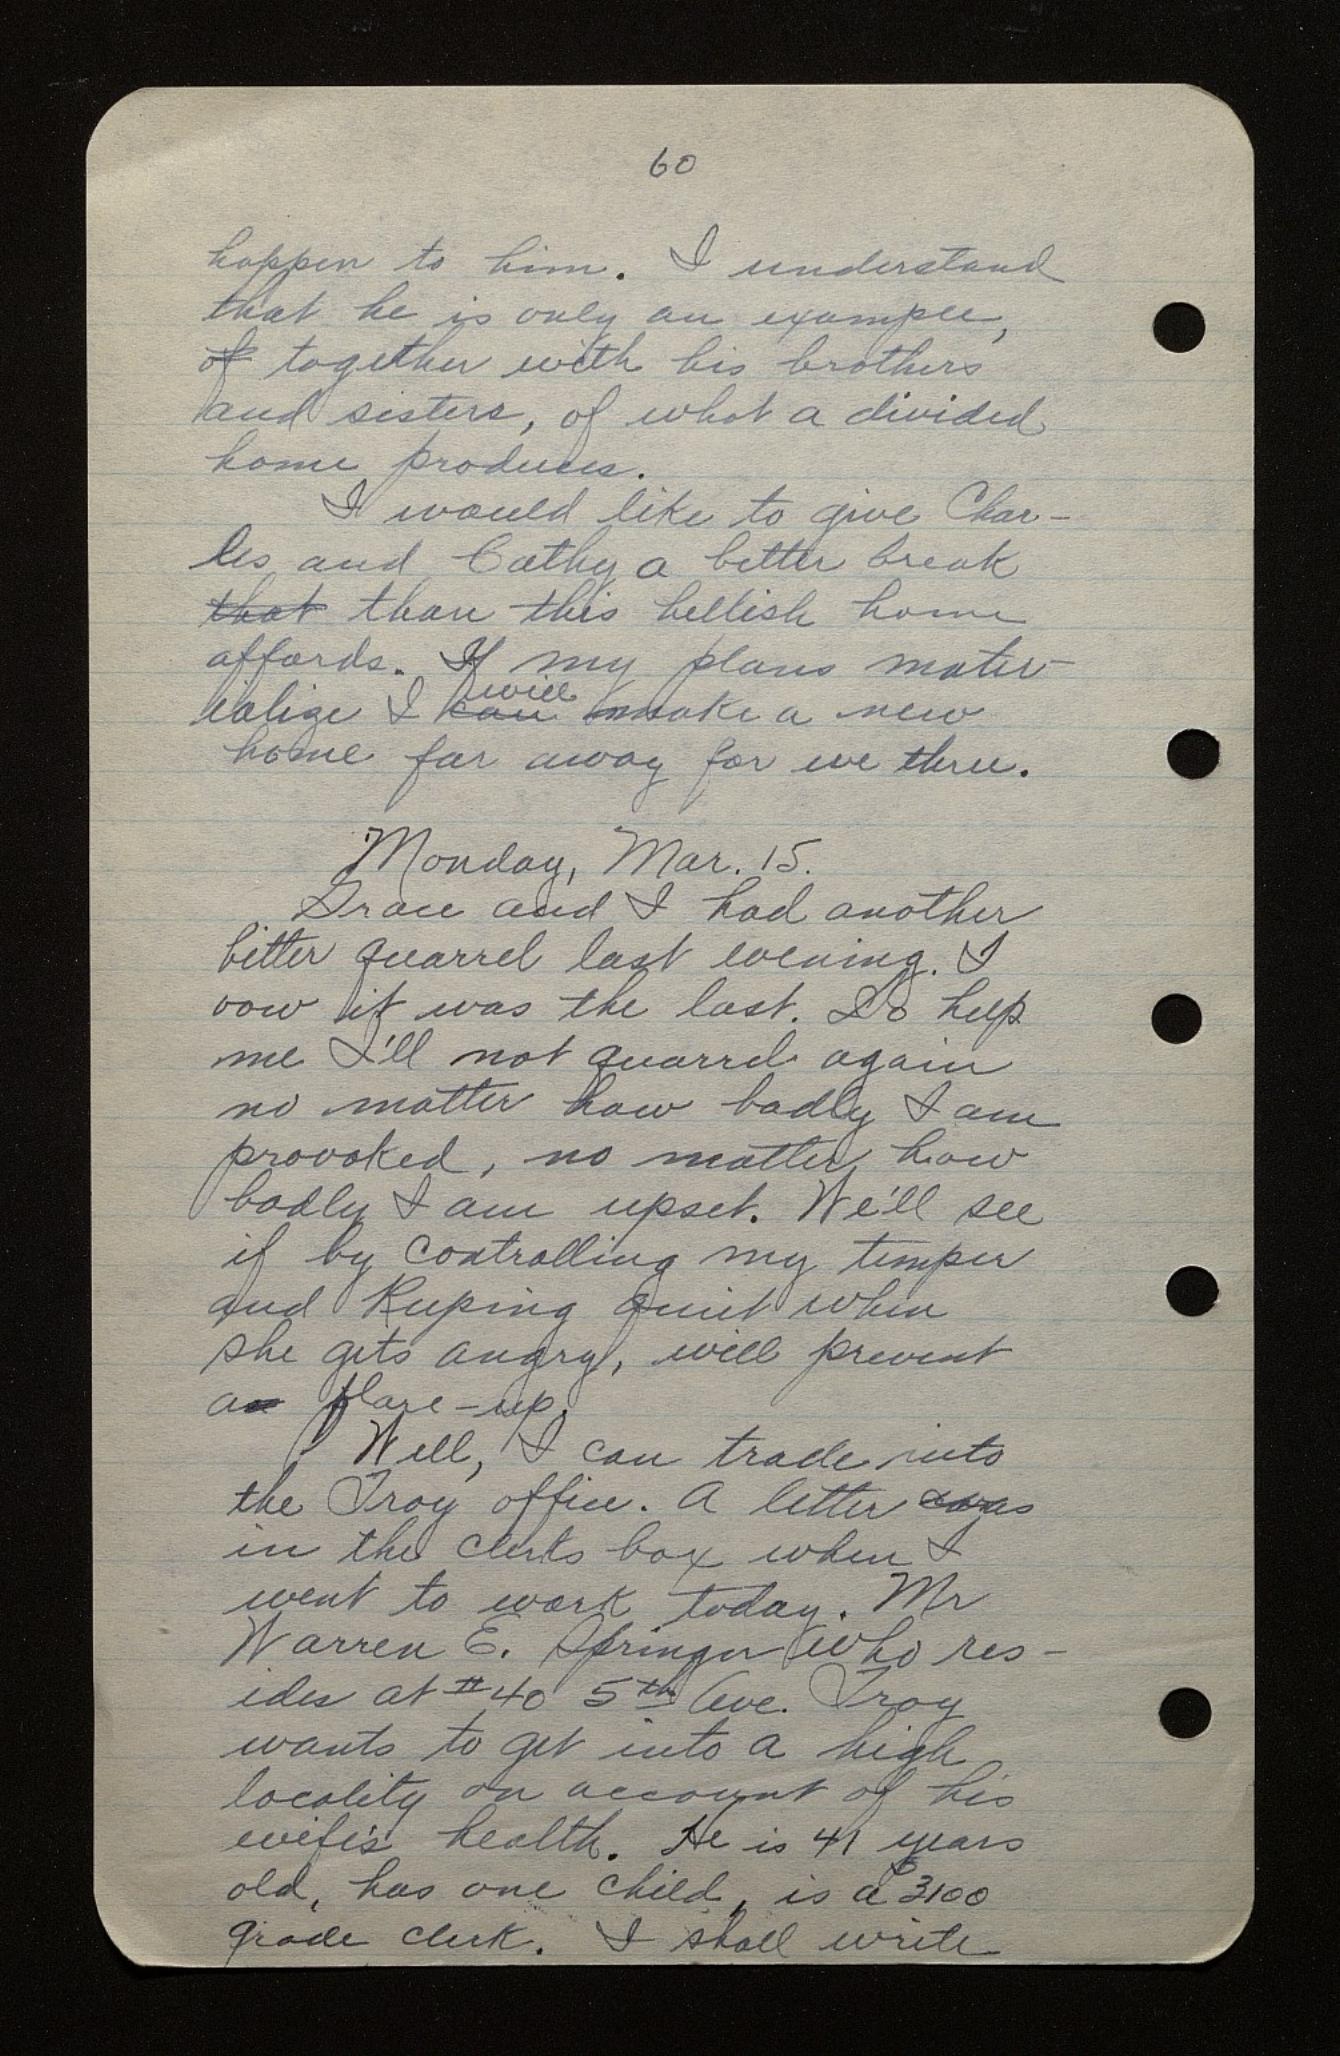 60
happen to him. I understand
that he is only an example,
of together with his brothers
and sisters, of what a divided
home produces.
I would like to give Char-
les and Cathy a better break
that than this hellish home
affords. If my plans mater-
ialize I can will make a new
home far away for we three.
Monday, Mar. 15.
Grace and I had another
bitter quarrel last evening. I
vow it was the last. So help
me I'll not quarrel again
no matter how badly I am
provoked, no matter how
badly I am upset. We'll see
if by controlling my temper
and keeping quiet when
she gets angry, will prevent
a flare-up.
Well, I can trade into
the Troy office. A letter was
in the clerks box when I
went to work today. Mr
Warren E. Springer who res-
ides at #40 5th Ave. Troy
wants to get into a high
locality on account of his
wife's health. He is 41 years
old, has one child, is a $3100
grade clerk. I shall write